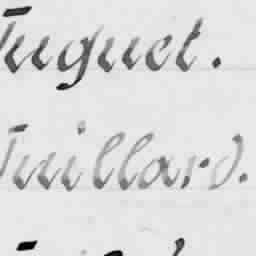 Tuguet.
Tuillard.